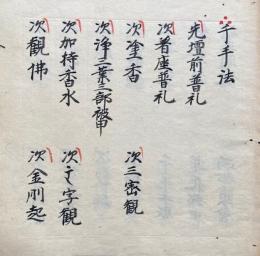 千手法
先壇前普礼
次着座普礼
次塗香　次三密観
次浄三業三部被甲
次加持香水　次㆑字観
次観佛　次金剛起